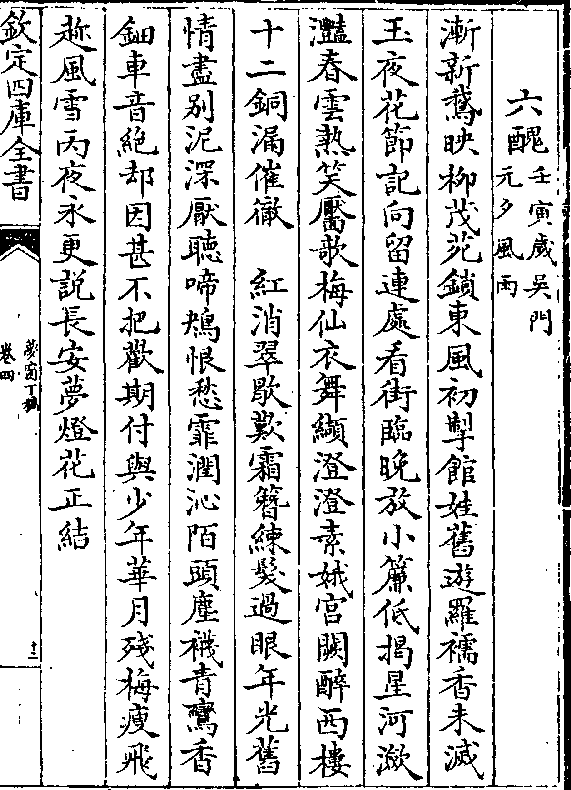 六醜壬寅歲吳門
元夕風雨
漸新鵞映柳茂苑鎖東風初掣館娃舊遊羅襦香未滅
玉夜花節記向留連處看街臨晚放小簾低揭星河瀲
灩春雲熱笑靨欹梅仙衣舞纈澄澄素娥宮闕醉西樓
十二銅漏催徹　紅消翠歇歎霜簪練髮過眼年光舊
情盡别泥深厭聽啼鴂恨愁霏潤沁陌頭塵襪青鸞杳
鈿車音絶却因甚不把歡期付與少年華月殘梅瘦飛
趂風雪丙夜永更説長安夢燈花正結
欽定四庫全書
夢窗丁稿
卷四
十三